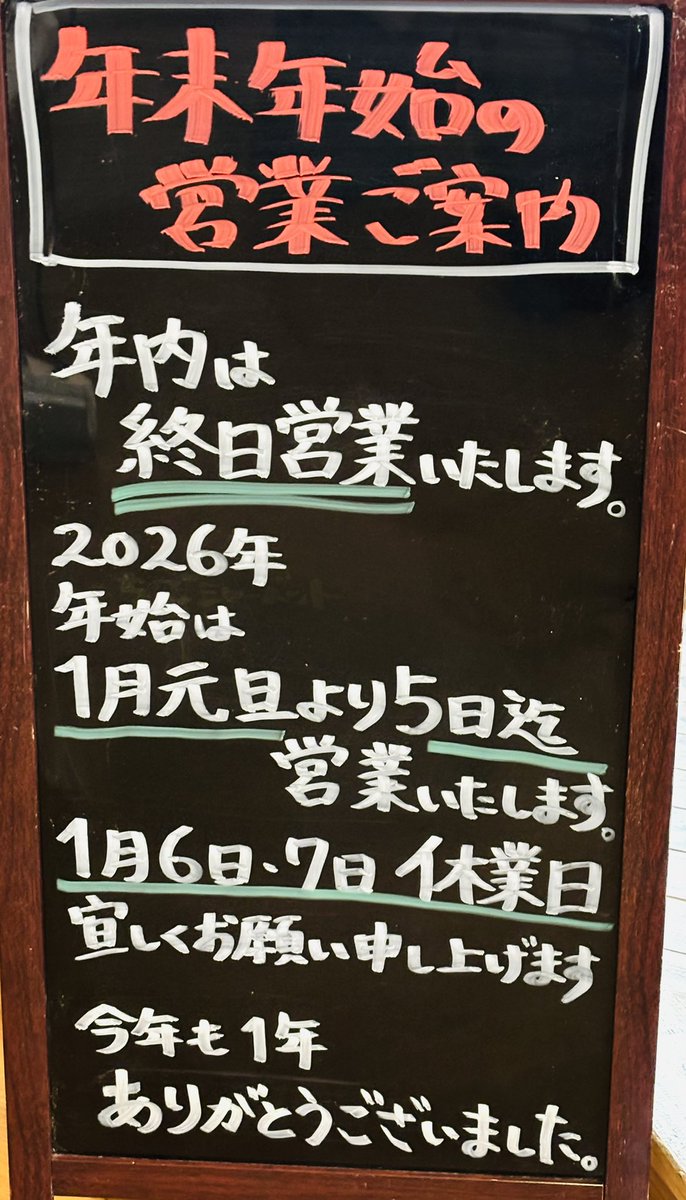 年末年始の
営業ご案内
年内は
終日営業いたします。
2026年
年始は
1月元旦より5日迄
営業いたします。
1月6日・7日 休業日
宜しくお願い申し上げます
今年も1年
ありがとうございました。